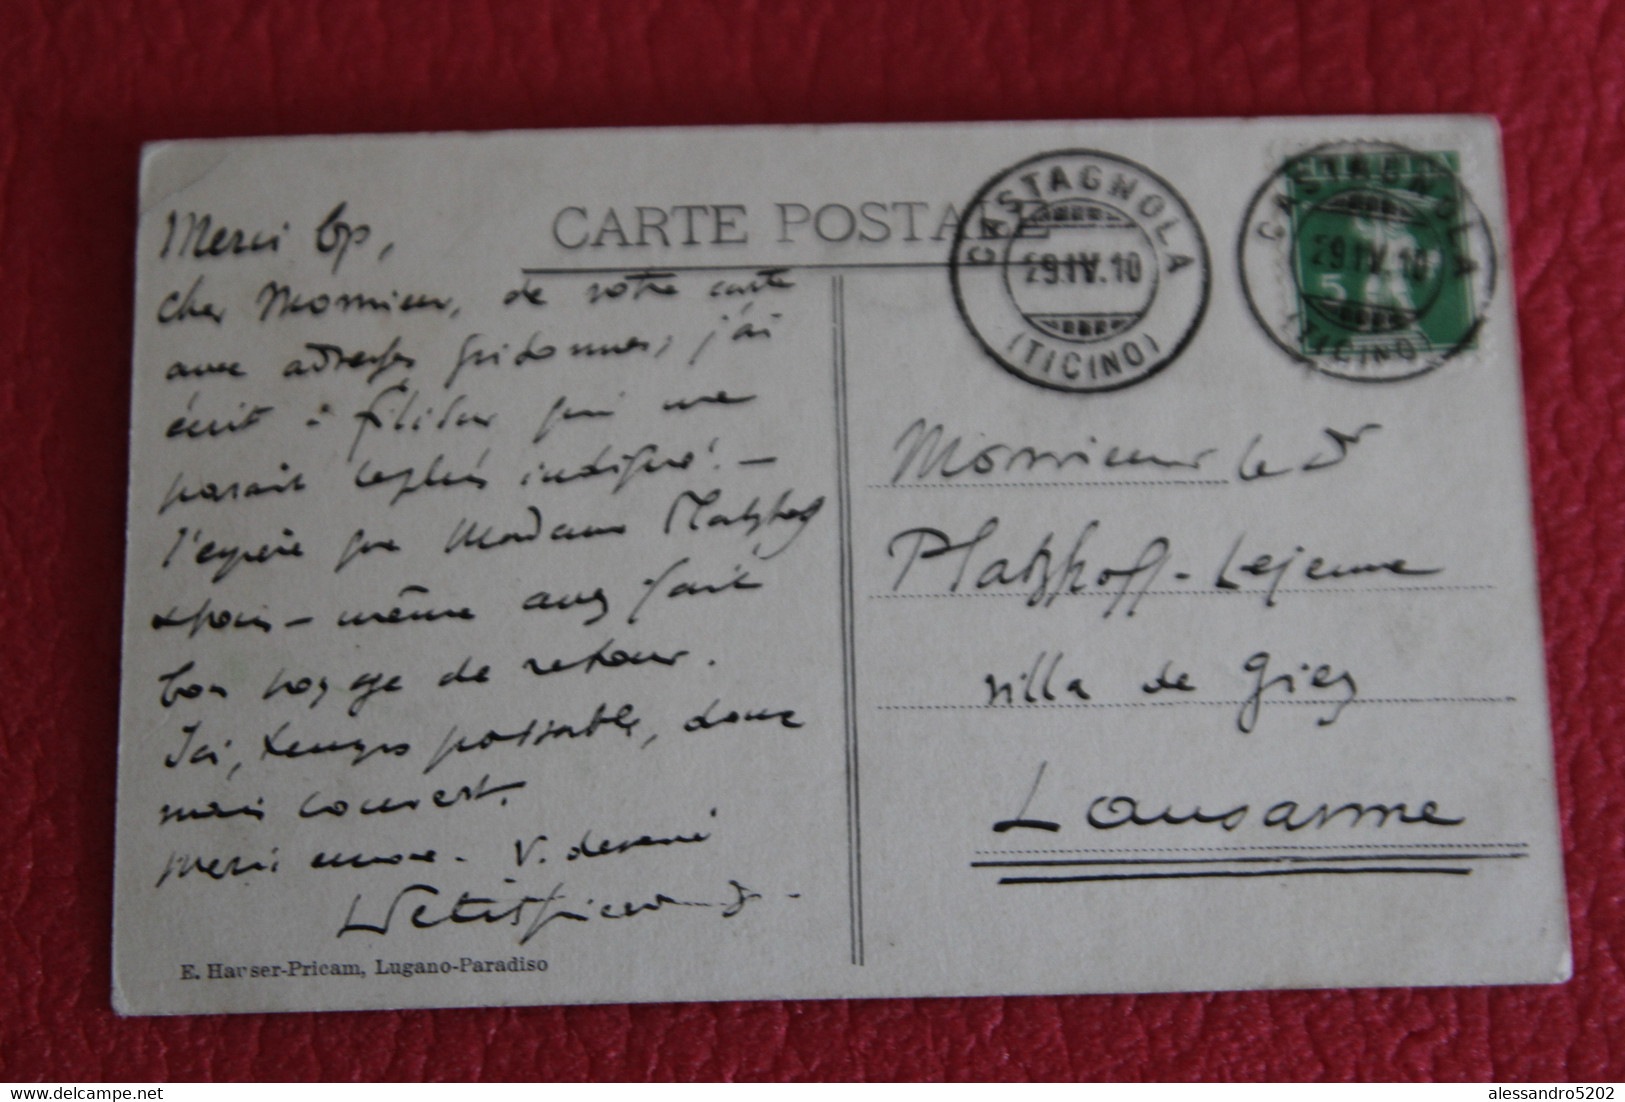 CARTE POSTALE
Merci bp,
cher Monsieur, de votre carte
avec adresses ; j'ai
écrit à qui me
parait le plus indiqué. —
J'espère que Madame Platzhoff
- même aura fait
bon voyage de retour.
Ici, temps passable, doux
mais couvert.
Merci encore. V. dévoué
E. Hauser-Pricam, Lugano-Paradiso
CASTAGNOLA
29.IV.10
(TICINO)
CASTAGNOLA
29.IV.10
(TICINO)
5
Monsieur le Dr
Platzhoff-Lejeune
villa de Giez
Lausanne
alessandro5202